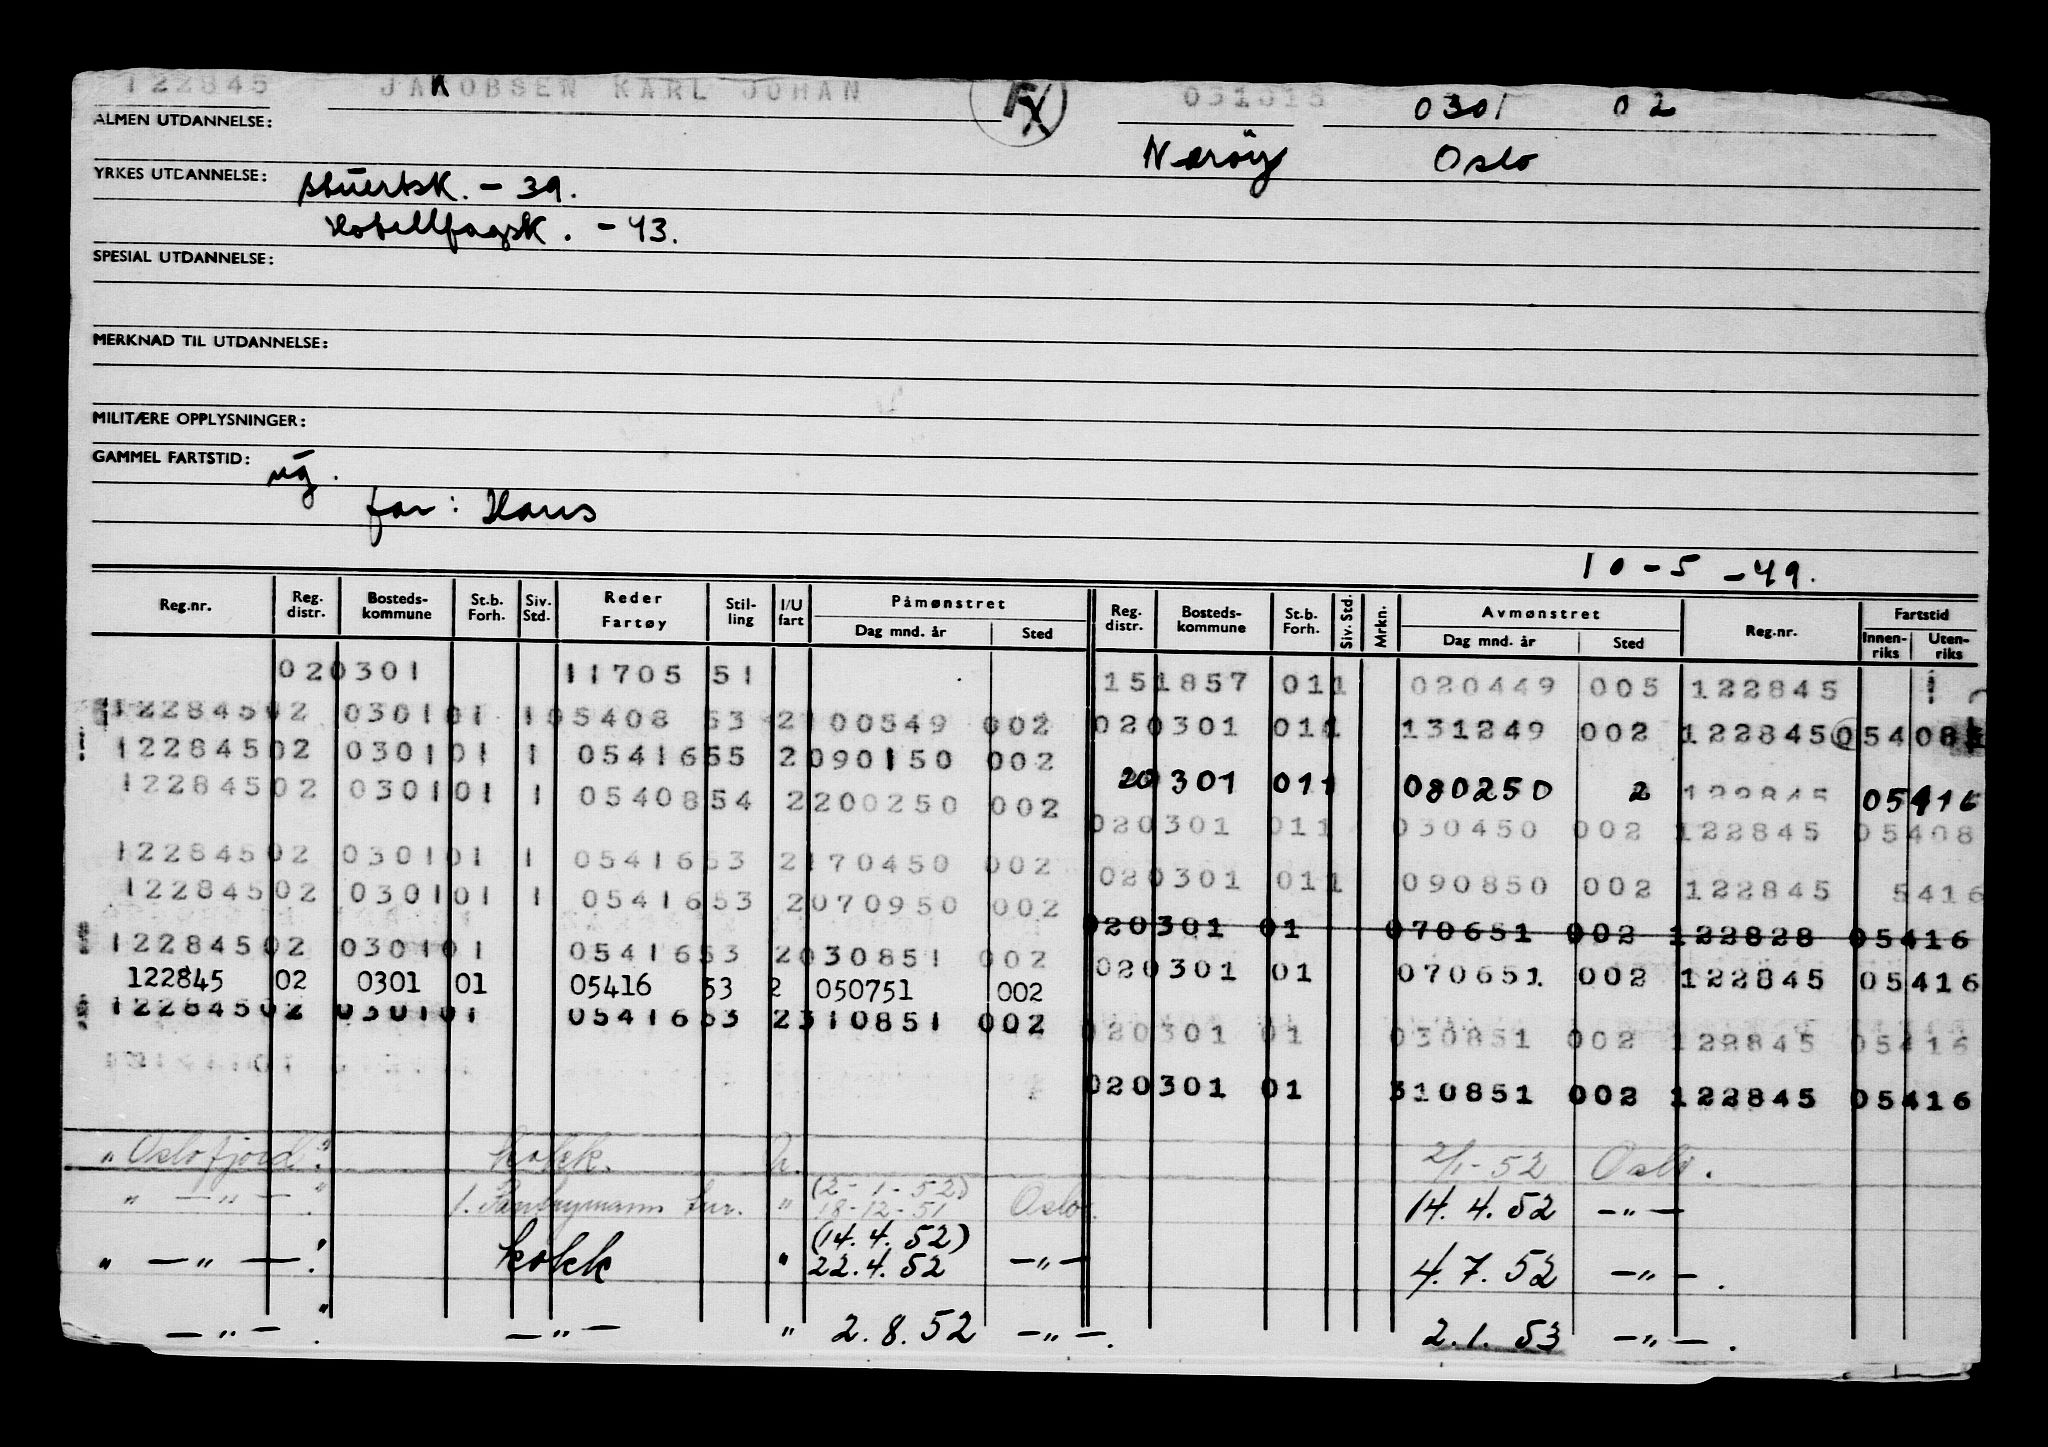 122845 JAKOBSEN KARL JOHAN FX 031015 0301 02
ALMEN UTDANNELSE: Nerøy Oslo
YRKES UTDANNELSE: stuertsk. - 39.
Hotellfagsk. - 43.
SPESIAL UTDANNELSE:
MERKNAD TIL UTDANNELSE:
MILITÆRE OPPLYSNINGER:
GAMMEL FARTSTID:
far: Hans
10-5-49.
Reg.nr. Reg. distr. Bosteds-kommune St.b. Forh. Siv. Std. Reder Fartøy Stil-ling I/U fart Påmønstret Dag mnd. år Sted Reg. distr. Bosteds-kommune St.b. Forh. Siv. Std. Mrkn. Avmønstret Dag mnd. år Sted Reg.nr. Fartstid Innen-riks Uten-riks
020301 11705 51 151857 011 020449 005 122845
122845 02 0301 01 1 05408 53 2 100549 002 020301 011 131249 002 122845 05408
122845 02 0301 01 1 05416 55 2 090150 002 20301 011 080250 2 122845 05416
122845 02 0301 01 1 05408 54 2 200250 002 020301 011 030450 002 122845 05408
122845 02 0301 01 1 05416 53 2 170450 002 020301 011 090850 002 122845 5416
122845 02 0301 01 1 05416 53 2 070950 002 020301 01 070651 002 122828 05416
122845 02 0301 01 05416 53 2 030851 002 020301 01 070651 002 122845 05416
122845 02 0301 01 05416 53 2 050751 002
122845 02 0301 01 05416 53 2 310851 002 020301 01 030851 002 122845 05416
020301 01 310851 002 122845 05416
"Oslofjord" kokk. u. 2/1-52 Oslo.
" — " — " 1. Pantrymann tur. " (2-1-52) 18-12-51 Oslo. 14.4.52 — " —
" — " — " kokk " (14.4.52) 22.4.52 — " — 4.7.52 — " — .
— " — " — " — " 2.8.52 — " — . 2.1.53 — " — .